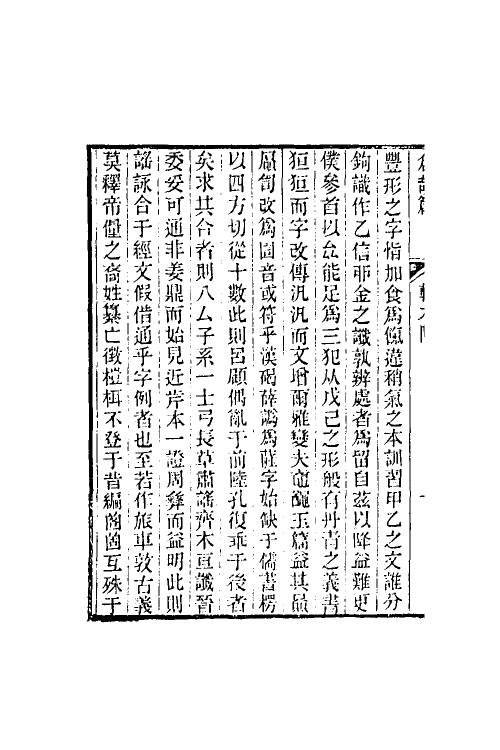 豐形之字惟加食爲餼違稍氣之本訓習甲乙之文誰分
鉤識作乙信非金之讖孰辨處者爲留自茲以降益難更
僕參首以厽能足爲三犯从戊己之形般有丹青之義書
狟狟而字改傳汎汎而文增爾雅變大 玉篇益其
改爲圁音或符乎漢碣薛譌爲薩字始缺于儒書楞
以四方切從十數此則呂顧偶亂于前陸孔復乖于後者
矣求其合者則八厶子系一士弓長草肅謠齊木亘讖晉
委妥可通非姜鼎而始見近芹本一證周彝而益明此則
謡詠合于經文假借通乎字例者也至若作旅車敦古義
莫釋帝僮之裔姓纂亡徵榰枏不登于昔編 互殊于